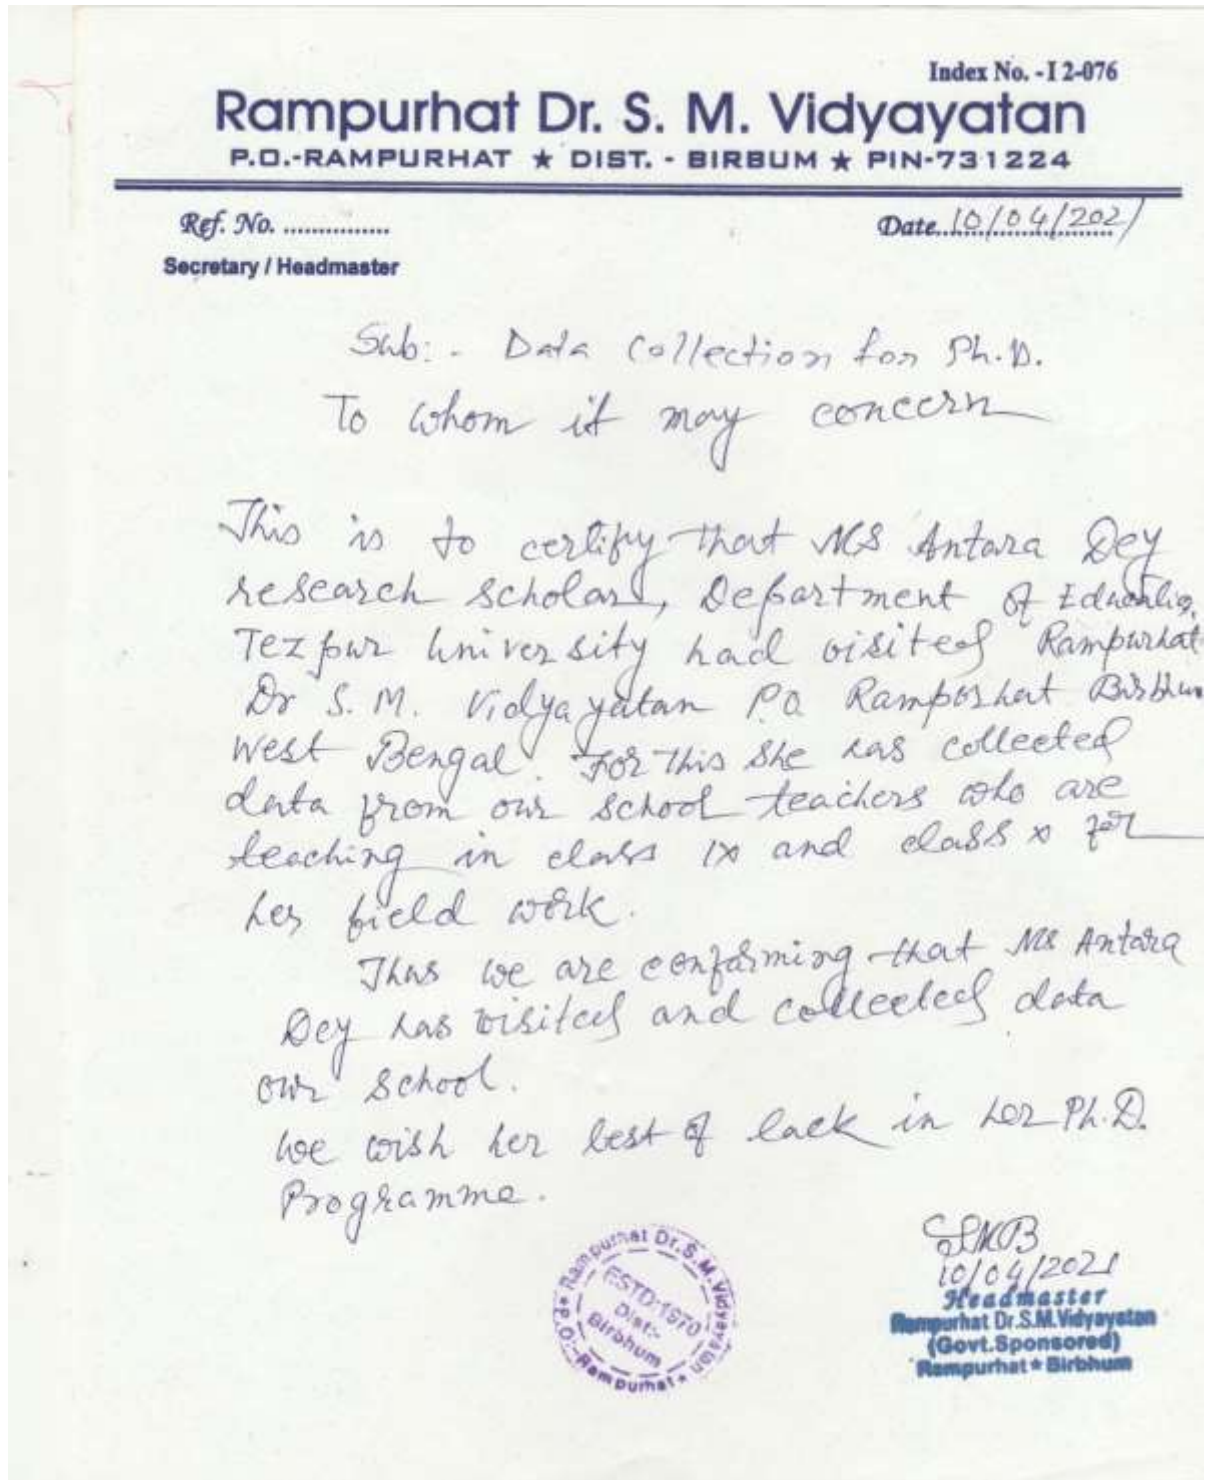 Index No. - I 2-076
Rampurhat Dr. S. M. Vidyayatan
P.O.-RAMPURHAT ★ DIST. - BIRBUM ★ PIN-731224
Ref. No. ...............
Date 10/04/2021
Secretary / Headmaster
Sub: - Data Collection for Ph.D.
To whom it may concern
This is to certify that MS Antara Dey
research scholar, Department of Education,
Tezpur University had visited Rampurhat
Dr S. M. Vidyayatan P.O Ramporhat Birbhum
West Bengal. For this she has collected
data from our school teachers who are
teaching in class IX and class X for
her field work.
Thus we are confirming that MS Antara
Dey has visited and collected data
our school.
We wish her best of lack in her Ph.D.
Programme.
Rampurhat Dr. S. M. Vidyayatan
P.O:-Rampurhat
ESTD:1970
Dist:-
Birbhum
10/04/2021
Headmaster
Rampurhat Dr.S.M.Vidyayatan
(Govt.Sponsored)
Rampurhat ★ Birbhum